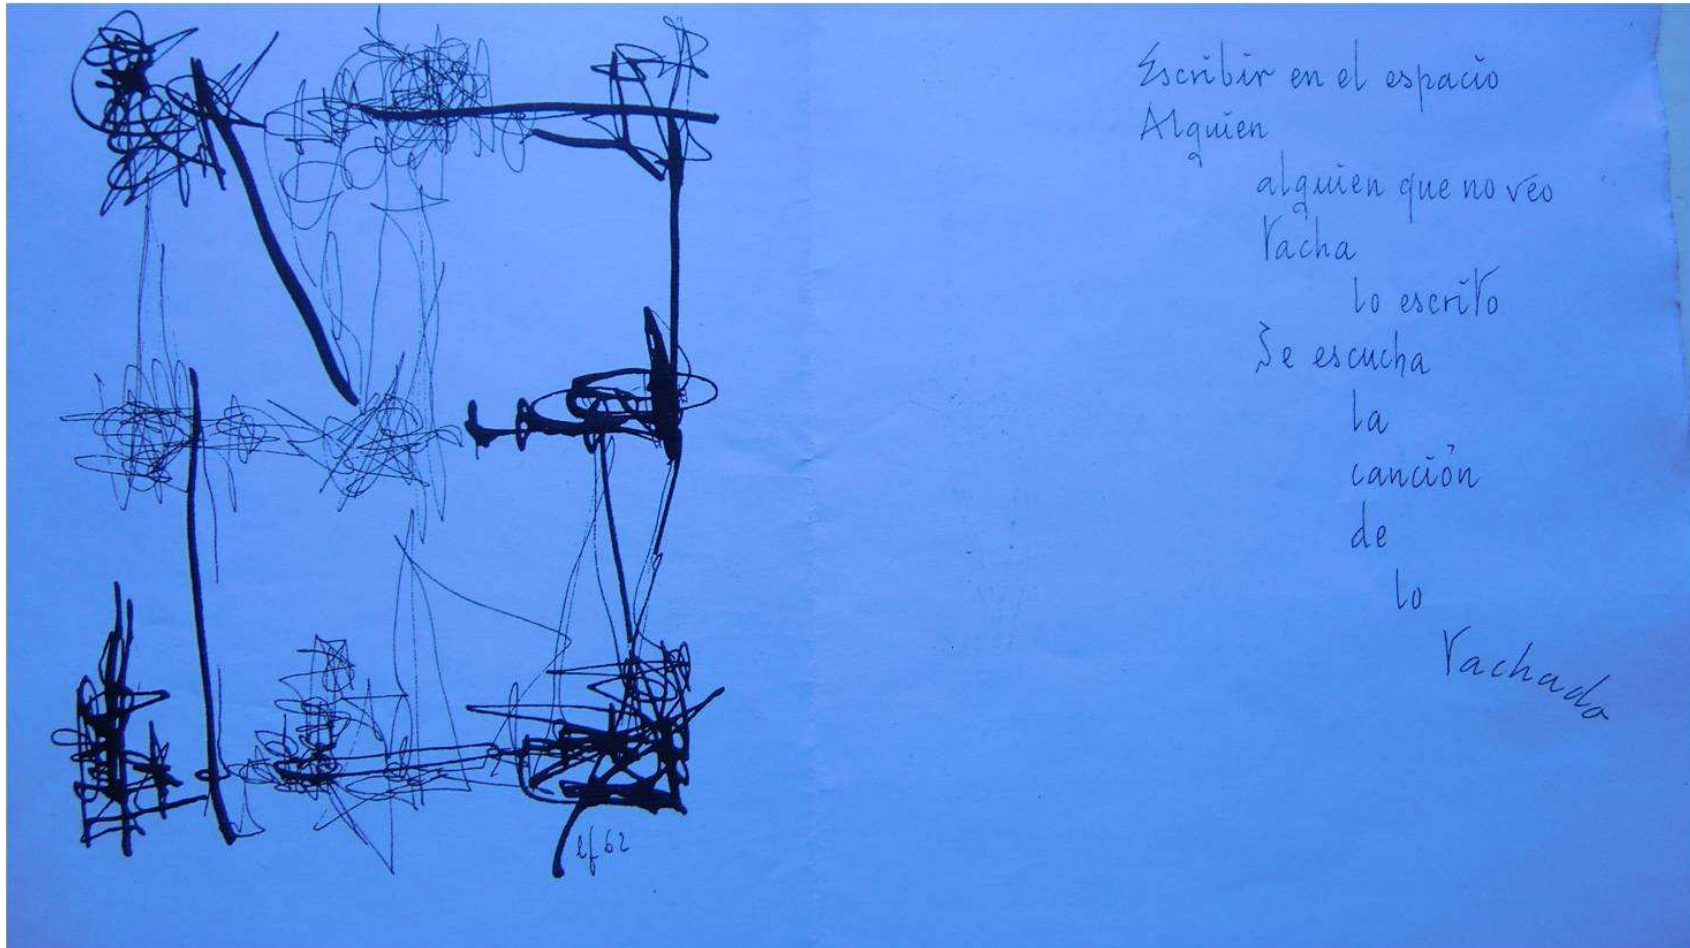 Escribir en el espacio
Alguien
alguien que no veo
Tacha
lo escrito
Se escucha
la
canción
de
lo
Tachado
lf 62